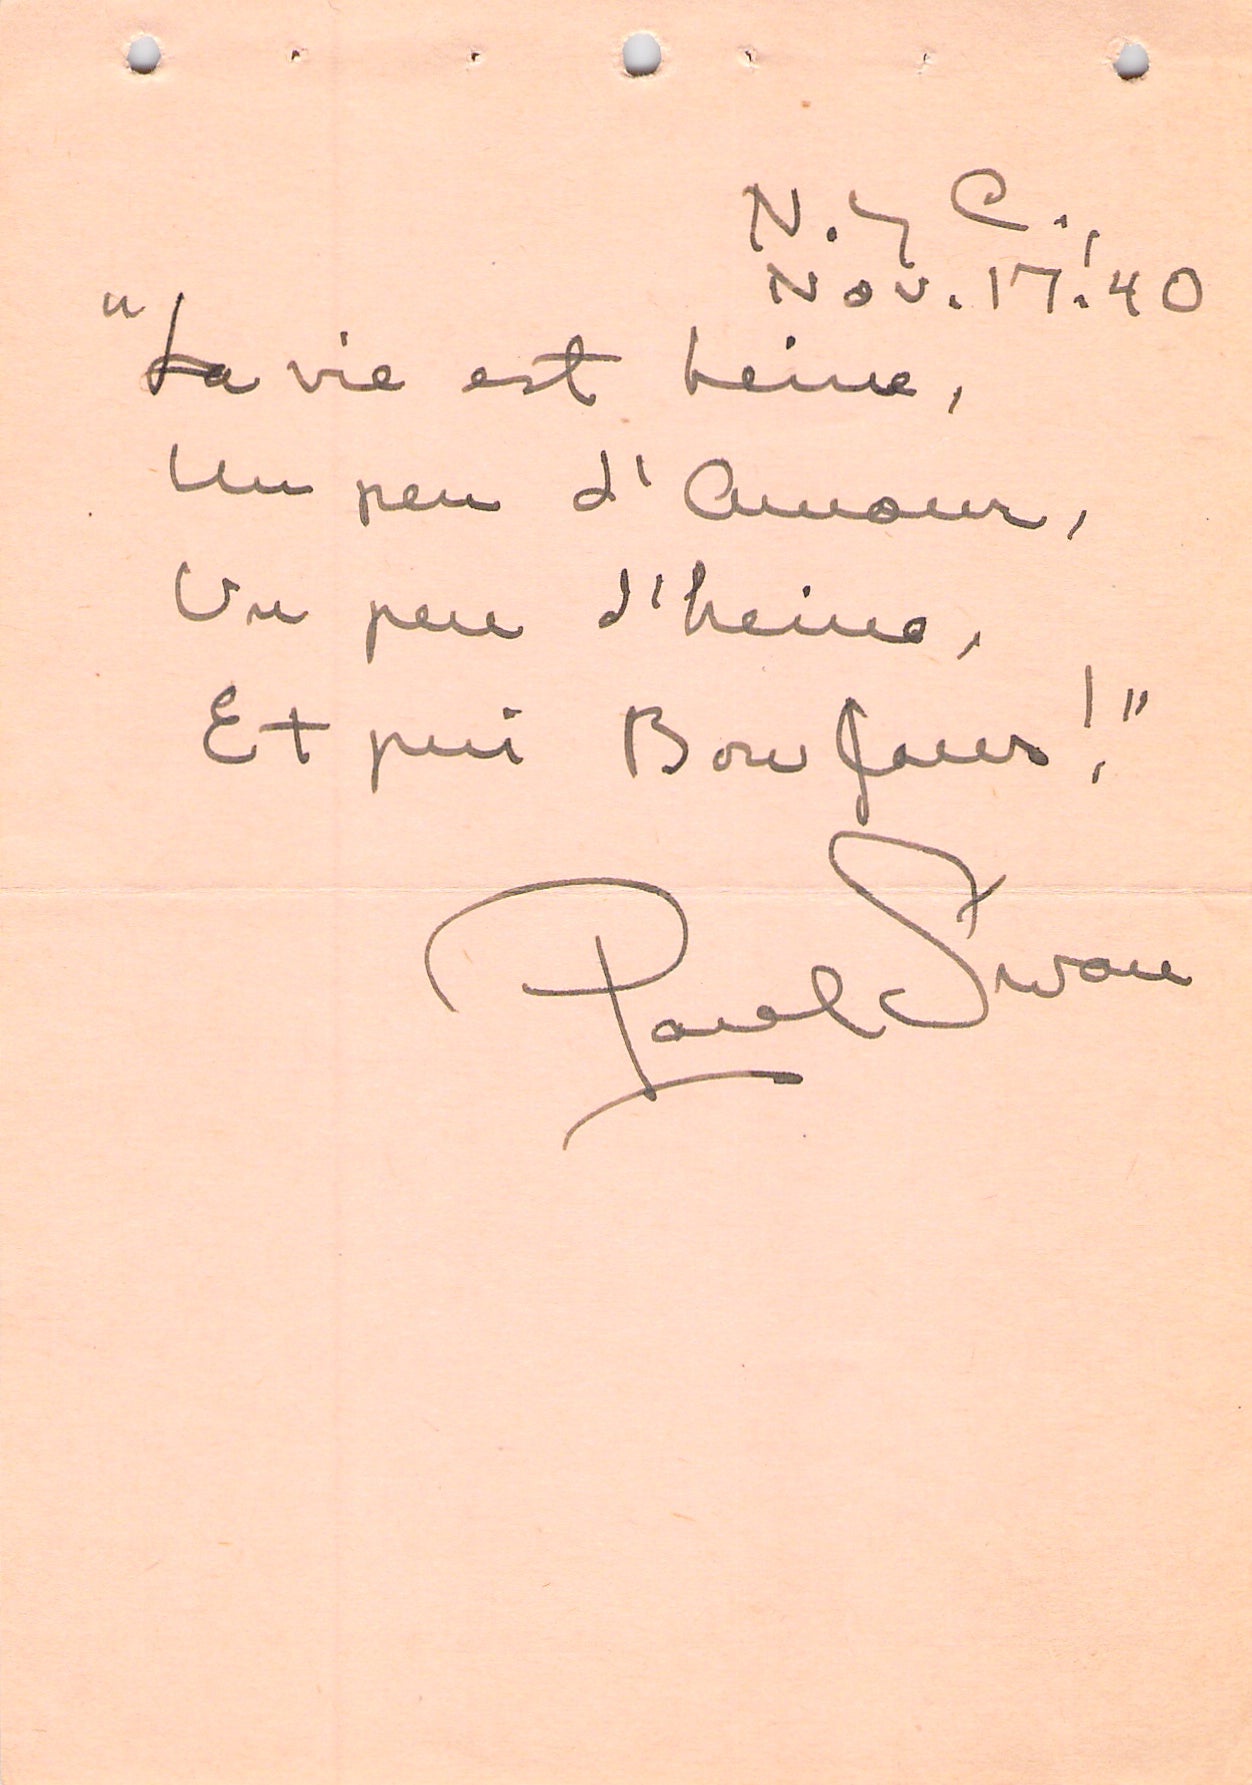 N.Y C.,
Nov. 17. '40
"La vie est beine,
Un peu d'Amour,
Un peu d'heine,
Et pui Bon Jour!"
Paul Swan